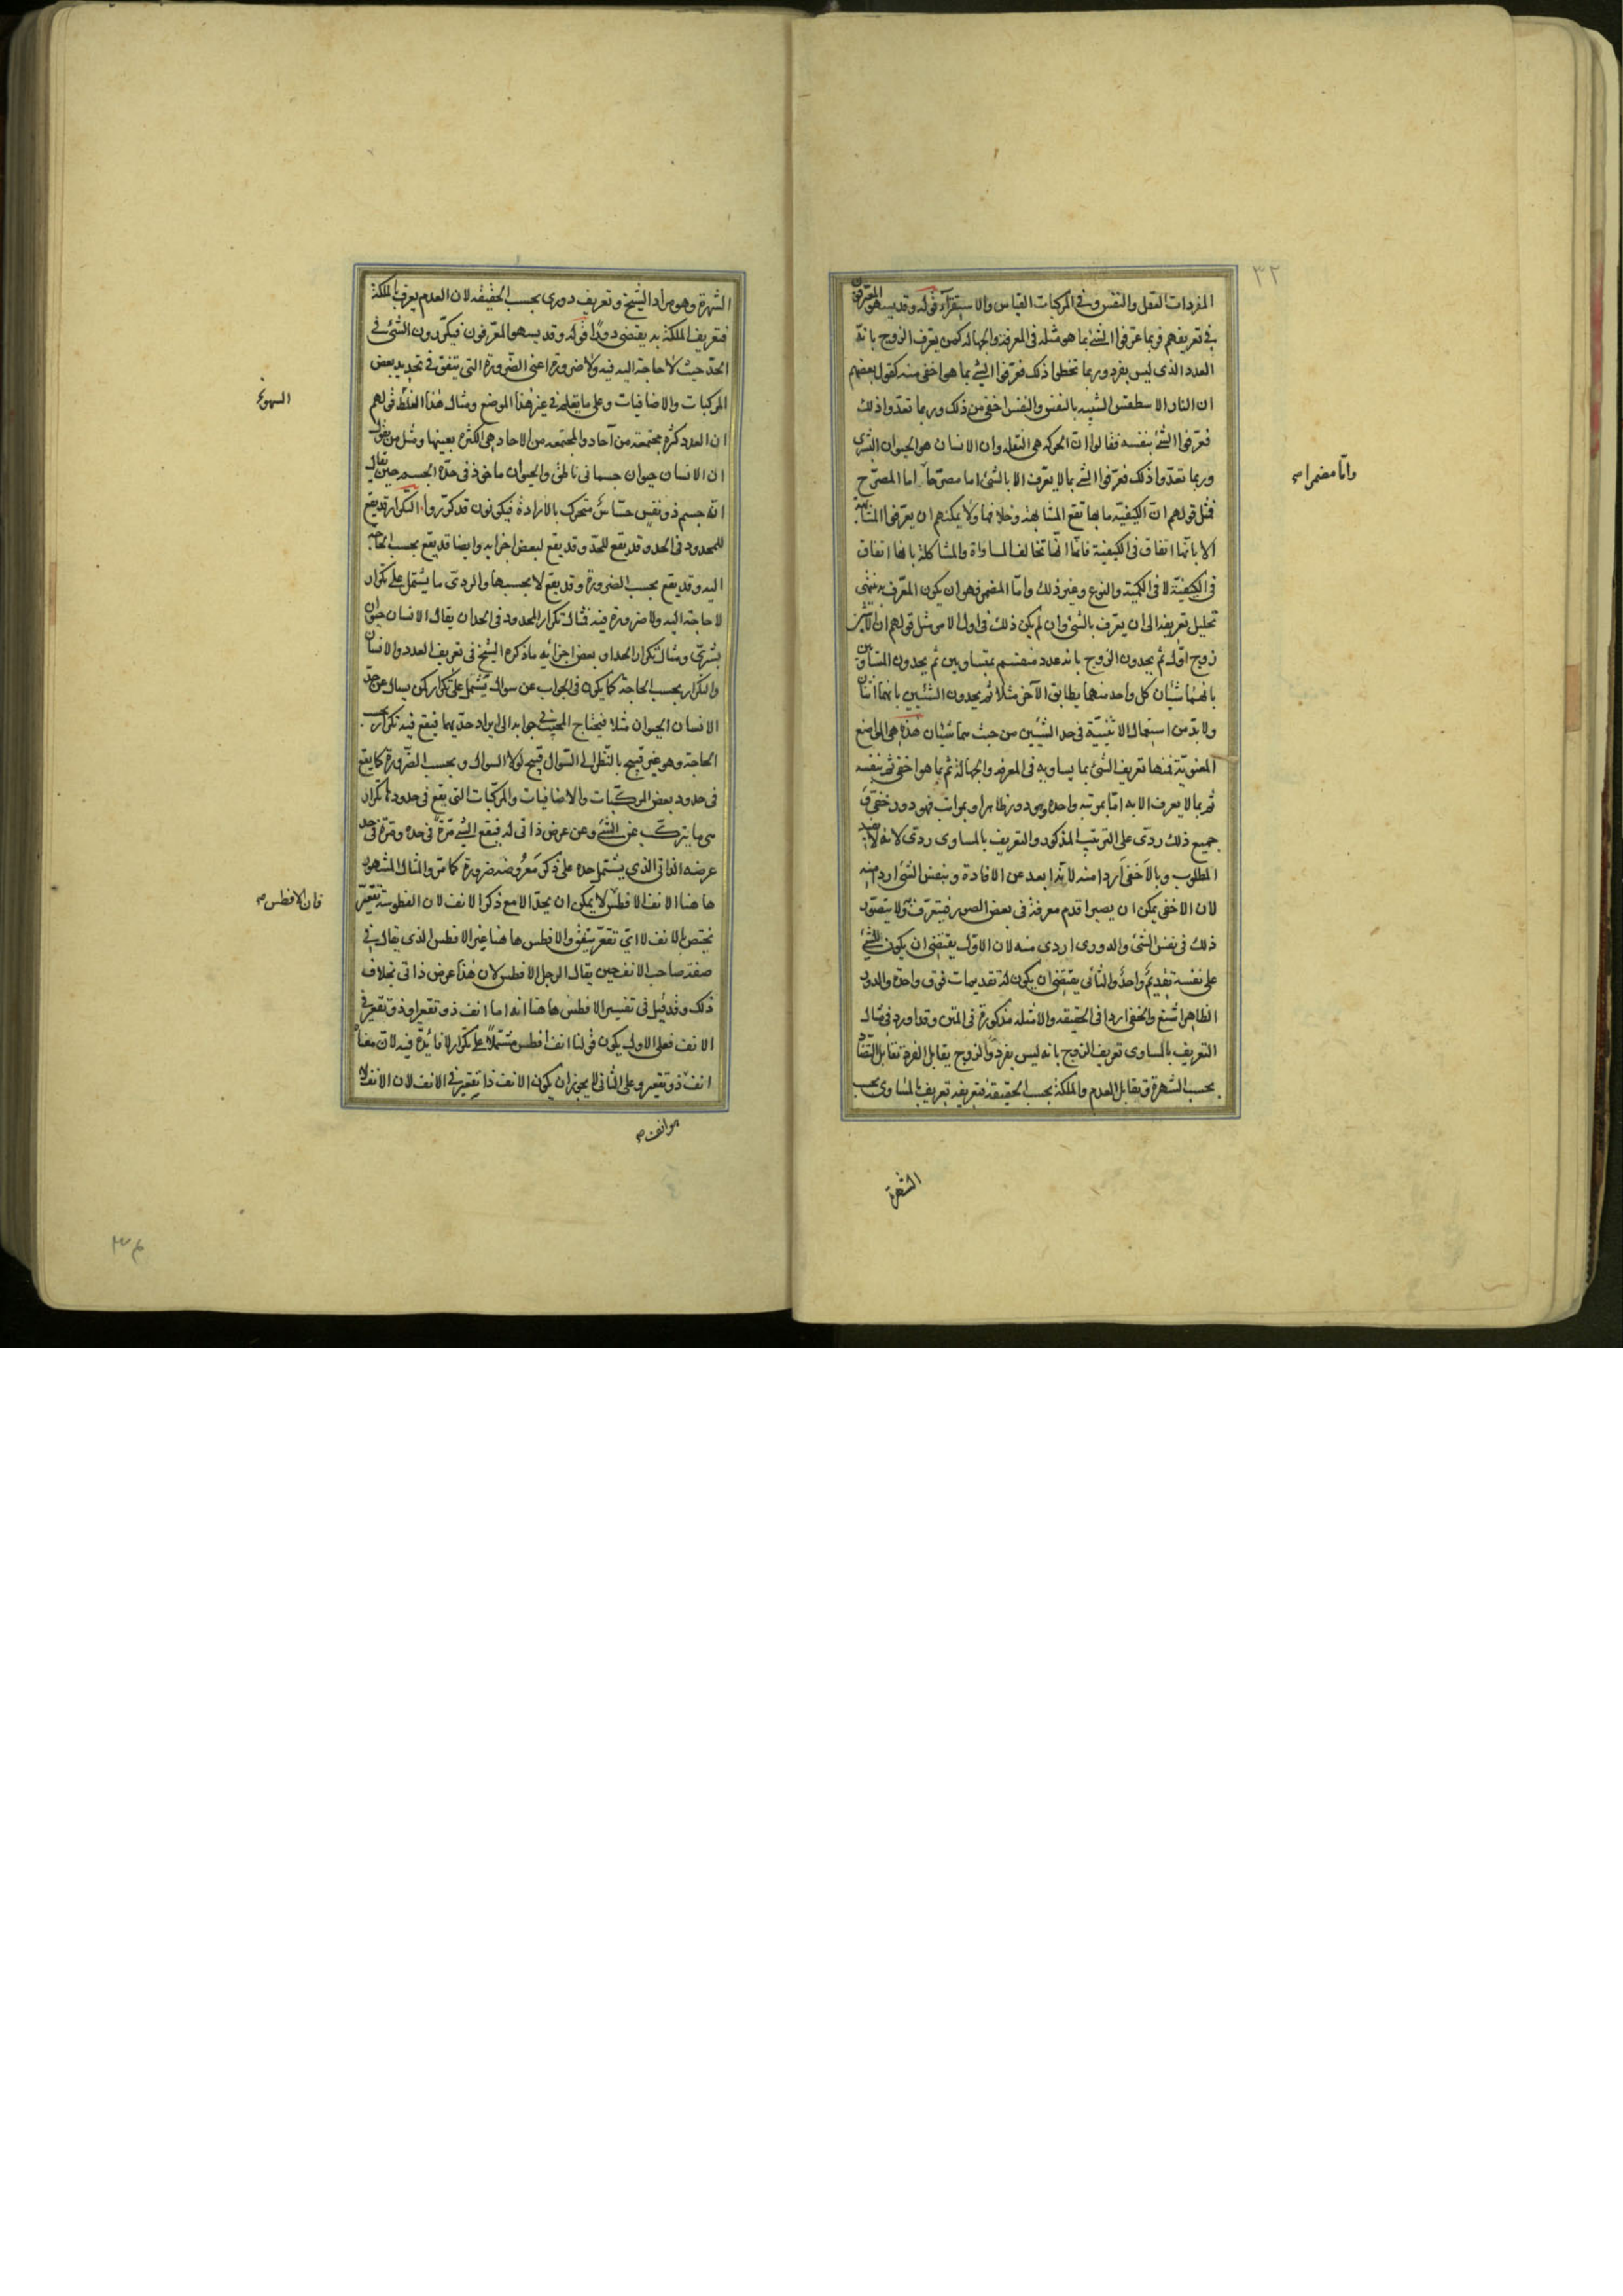 ٣٢
المفردات العقل والنفس وفى المركبات القياس والاستقراء قوله وقد يسهو المعرفون
فى تعريفهم فربما عرفوا الشئ بما هو مثله فى المعرفة والجهالة كمن يعرف الزوج بانه
العدد الذى ليس بفرد وربما تخطوا ذلك فعرفوا الشئ بما هو اخفى منه كقول بعضهم
ان النار الاسطقس الشبيه بالنفس والنفس اخفى من ذلك وربما تعدوا ذلك
فعرفوا الشئ بنفسه فقالوا ان الحركة هى النقلة وان الانسان هو الحيوان البشرى
وربما تعدوا ذلك فعرفوا الشئ بما لا يعرف الا بالشئ اما مصرحا اما المصرح
واما مضمرا صح
فمثل قولهم ان الكيفية ما بها تقع المشابهة وخلافها ولا يمكنهم ان يعرفوا المشابهة
الا بانها اتفاق فى الكيفية فانها انما تخالف المساواة والمشاكلة بانها اتفاق
فى الكيفية لا فى الكمية والنوع وغير ذلك واما المضمر فهو ان يكون المعرف به ينتهى
تحليل تعريفه الى ان يعرف بالشئ وان لم يكن ذلك فى اول الامر مثل قولهم ان الاثنين
زوج اول ثم يحدون الزوج بانه عدد منقسم بمتساويين ثم يحدون المتساويين
بانهما شيئان كل واحد منهما يطابق الآخر مثلا ثم يحدون الشيئين بانهما اثنان
ولا بد من استعمال الاثنينية فى حد الشيئين من حيث هما شيئان هذه هى المواضع
المعنوية فمنها تعريف الشئ بما يساويه فى المعرفة والجهالة ثم بما هو اخفى ثم بنفسه
ثم بما لا يعرف الا به اما بمرتبة واحدة وهو دور ظاهر او بمراتب فهو دور خفى و
جميع ذلك ردى على الترتيب المذكور والتعريف بالمساوى ردى لانه لا يفيد
المطلوب وبالاخفى اردا منه لانه ابعد عن الافادة وبنفس الشئ اردا منه
لان الاخفى يمكن ان يصير اقدم معرفة فى بعض الصور فيتعرف به ولا يتصور
ذلك فى نفس الشئ والدورى اردى منه لان الاول يقتضى ان يكون للشئ
على نفسه تقديم واحد والثانى يقتضى ان يكون له تقديمات فوق واحدة والدور
الظاهر اشنع والخفى اردا فى الحقيقة والامثلة مذكورة فى المتن وقد اورد فى مثال
التعريف بالمساوى تعريف الزوج بانه ليس بفرد والزوج يقابل الفرد تقابل التضاد
بحسب الشهرة وتقابل العدم والملكة بحسب الحقيقة فتعريفه تعريف بالمساوى بحسب
الشهرة
الشهرة وهو مراد الشيخ وتعريف دورى بحسب الحقيقة لان العدم يعرف بالملكة
فتعريف الملكة به يقتضى دورا قوله وقد يسهو المعرفون فيكررون الشئ فى
الحد حيث لا حاجة اليه فيه ولا ضرورة اعنى الضرورة التى يتفق فى تحديد بعض
المركبات والاضافيات وعلى ما يعلم فى غير هذا الموضع ومثال هذا الغلط قولهم
ان العدد كثرة مجتمعة من آحاد والمجتمعة من الآحاد هى الكثرة بعينها ومثل من يقول
ان الانسان حيوان جسمانى ناطق والحيوان ماخوذ فى حده الجسم حين يقال
انه جسم ذو نفس حساس متحرك بالارادة فيكونون قد كرروا التكرار قد يقع
للمحدود فى الحد وقد يقع للحد وقد يقع لبعض اجزايه وايضا قد يقع بحسب الحاجة
اليه وقد يقع بحسب الضرورة وقد يقع لا بحسبها والردى ما يشتمل على تكرار
لا حاجة اليه ولا ضرورة فيه فمثال تكرار المحدود فى الحد ان يقال الانسان حيوان
بشرى ومثال تكرار الحد او بعض اجزائه ما ذكره الشيخ فى تعريف العدد والانسان
والتكرار بحسب الحاجة كما يكون فى الجواب عن سوال يشتمل على تكرار كمن يسال عن حد
الانسان الحيوان مثلا فيحتاج المجيب فى جوابه الى ايراد حديهما فيقع فيه تكرار بحسب
الحاجة وهو غير قبيح بالنظر الى السوال قبيح لولا السوال وبحسب الضرورة كما يقع
فى حدود بعض المركبات والاضافيات والمركبات التى يقع فى حدودها تكرار
هى ما يتركب عن الشئ وعن عرض ذاتى له فيقع الشئ مرة فى حده ومرة فى حد
عرضه الذاتى الذى يشتمل حده على ذكر معروضه ضرورة كما مر والمثال المشهور
هاهنا الانف الافطس لا يمكن ان يحد الا مع ذكر الانف لان الفطوسة تقعير
فان الافطس صح
يختص بالانف لا اى تقعر يتفق والافطس هاهنا غير الافطس الذى يقال فى
صفة صاحب الانف حين يقال الرجل الافطس لان هذا عرض ذاتى بخلاف
ذلك وقد قيل فى تفسير الافطس هاهنا انه اما انف ذو تقعير او ذو تقعير فى
الانف فعلى الاول يكون قولنا انف افطس مشتملا على تكرار لا فائدة فيه لان معناه
انف ذو تقعير وعلى الثانى لا يجوز ان يكون الانف ذا تقعير فى الانف لان الانف لا